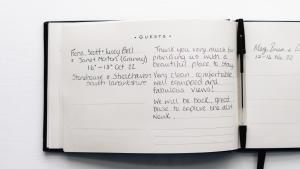 • GUESTS •
Fiona, Scott + Lucy Bell
+ Janet Morton (Granny)
16th - 18th Oct 22
Stonehouse + Strathaven
South Lanarkshire
Thank you very much for
providing us with a
beautiful place to stay.
Very clean, comfortable
well equipped and
fabulous views!
We will be back, great
base to explore the
Mary, &
12 - 16 Nov. 22